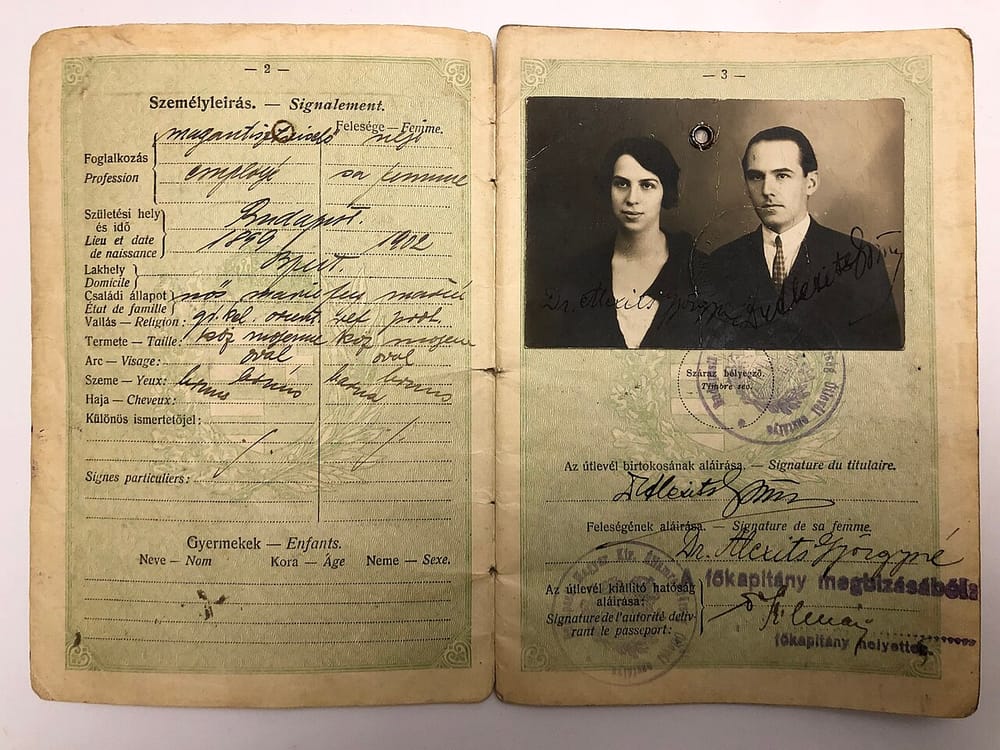 — 2 —
Személyleírás. — Signalement.
Felesége — Femme.
Foglalkozás
Profession
neje
sa femme
Születési hely
és idő
Lieu et date
de naissance
Budapest.
1899
1902
Lakhely
Domicile
Bpest.
Családi állapot
État de famille
nős marié
Vallás — Religion:
gr. kel. orient.
Termete — Taille:
köz moyenne
köz moyenne
Arc — Visage:
ovál
ovál
Szeme — Yeux:
barna
Haja — Cheveux:
Különös ismertetőjel:
Signes particuliers:
Gyermekek — Enfants.
Neve — Nom Kora — Âge Neme — Sexe.
— 3 —
Dr. Alexits Györgyné
Dr Alexits György
Száraz bélyegző.
Timbre sec.
Az útlevél birtokosának aláírása. — Signature du titulaire.
Dr Alexits György
Feleségének aláírása. — Signature de sa femme.
Dr. Alexits Györgyné
Az útlevél kiállító hatóság
aláírása:
Signature de l'autorité déliv-
rant le passeport:
A főkapitány megbízásából:
főkapitány helyettes.